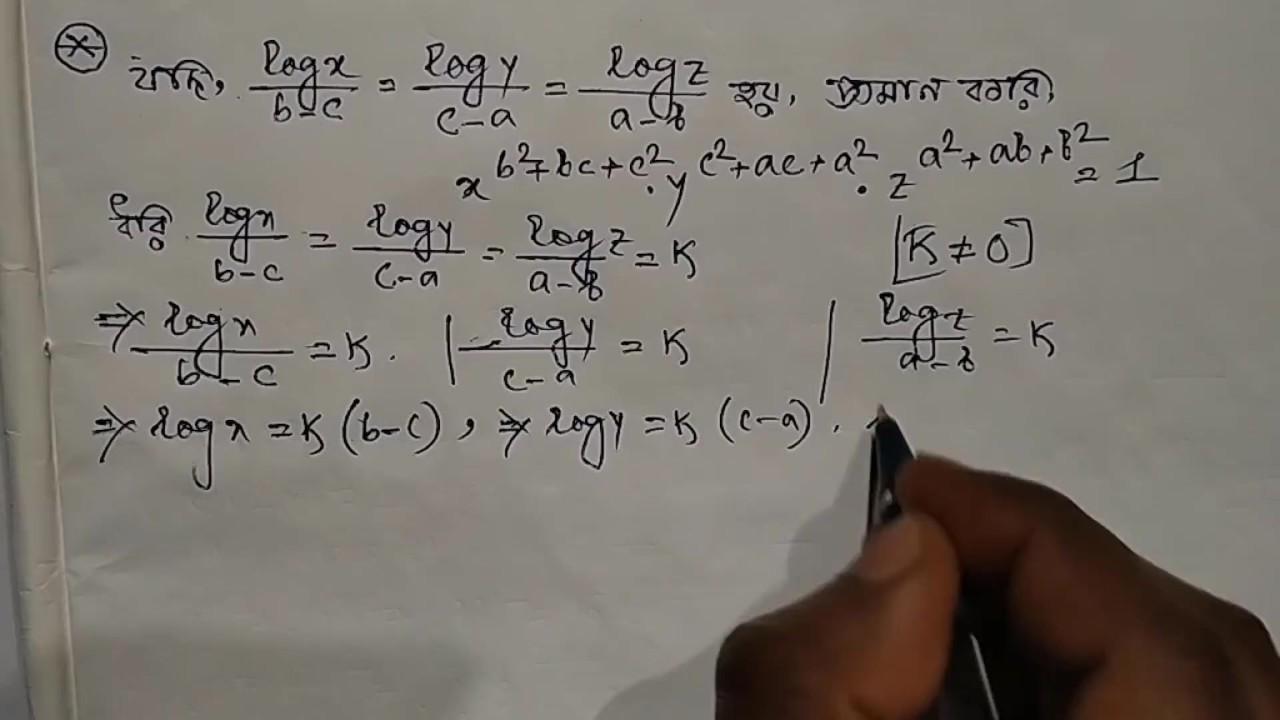 যদি, logx/b-c = logy/c-a = logz/a-b হয়, প্রমাণ করি,
x^b²+bc+c² . y^c²+ac+a² . z^a²+ab+b² = 1
ধরি logx/b-c = logy/c-a = logz/a-b = K [K ≠ 0]
⇒ logx/b-c = K . | logy/c-a = K | logz/a-b = K
⇒ logx = K (b-c) , ⇒ logy = K (c-a) .